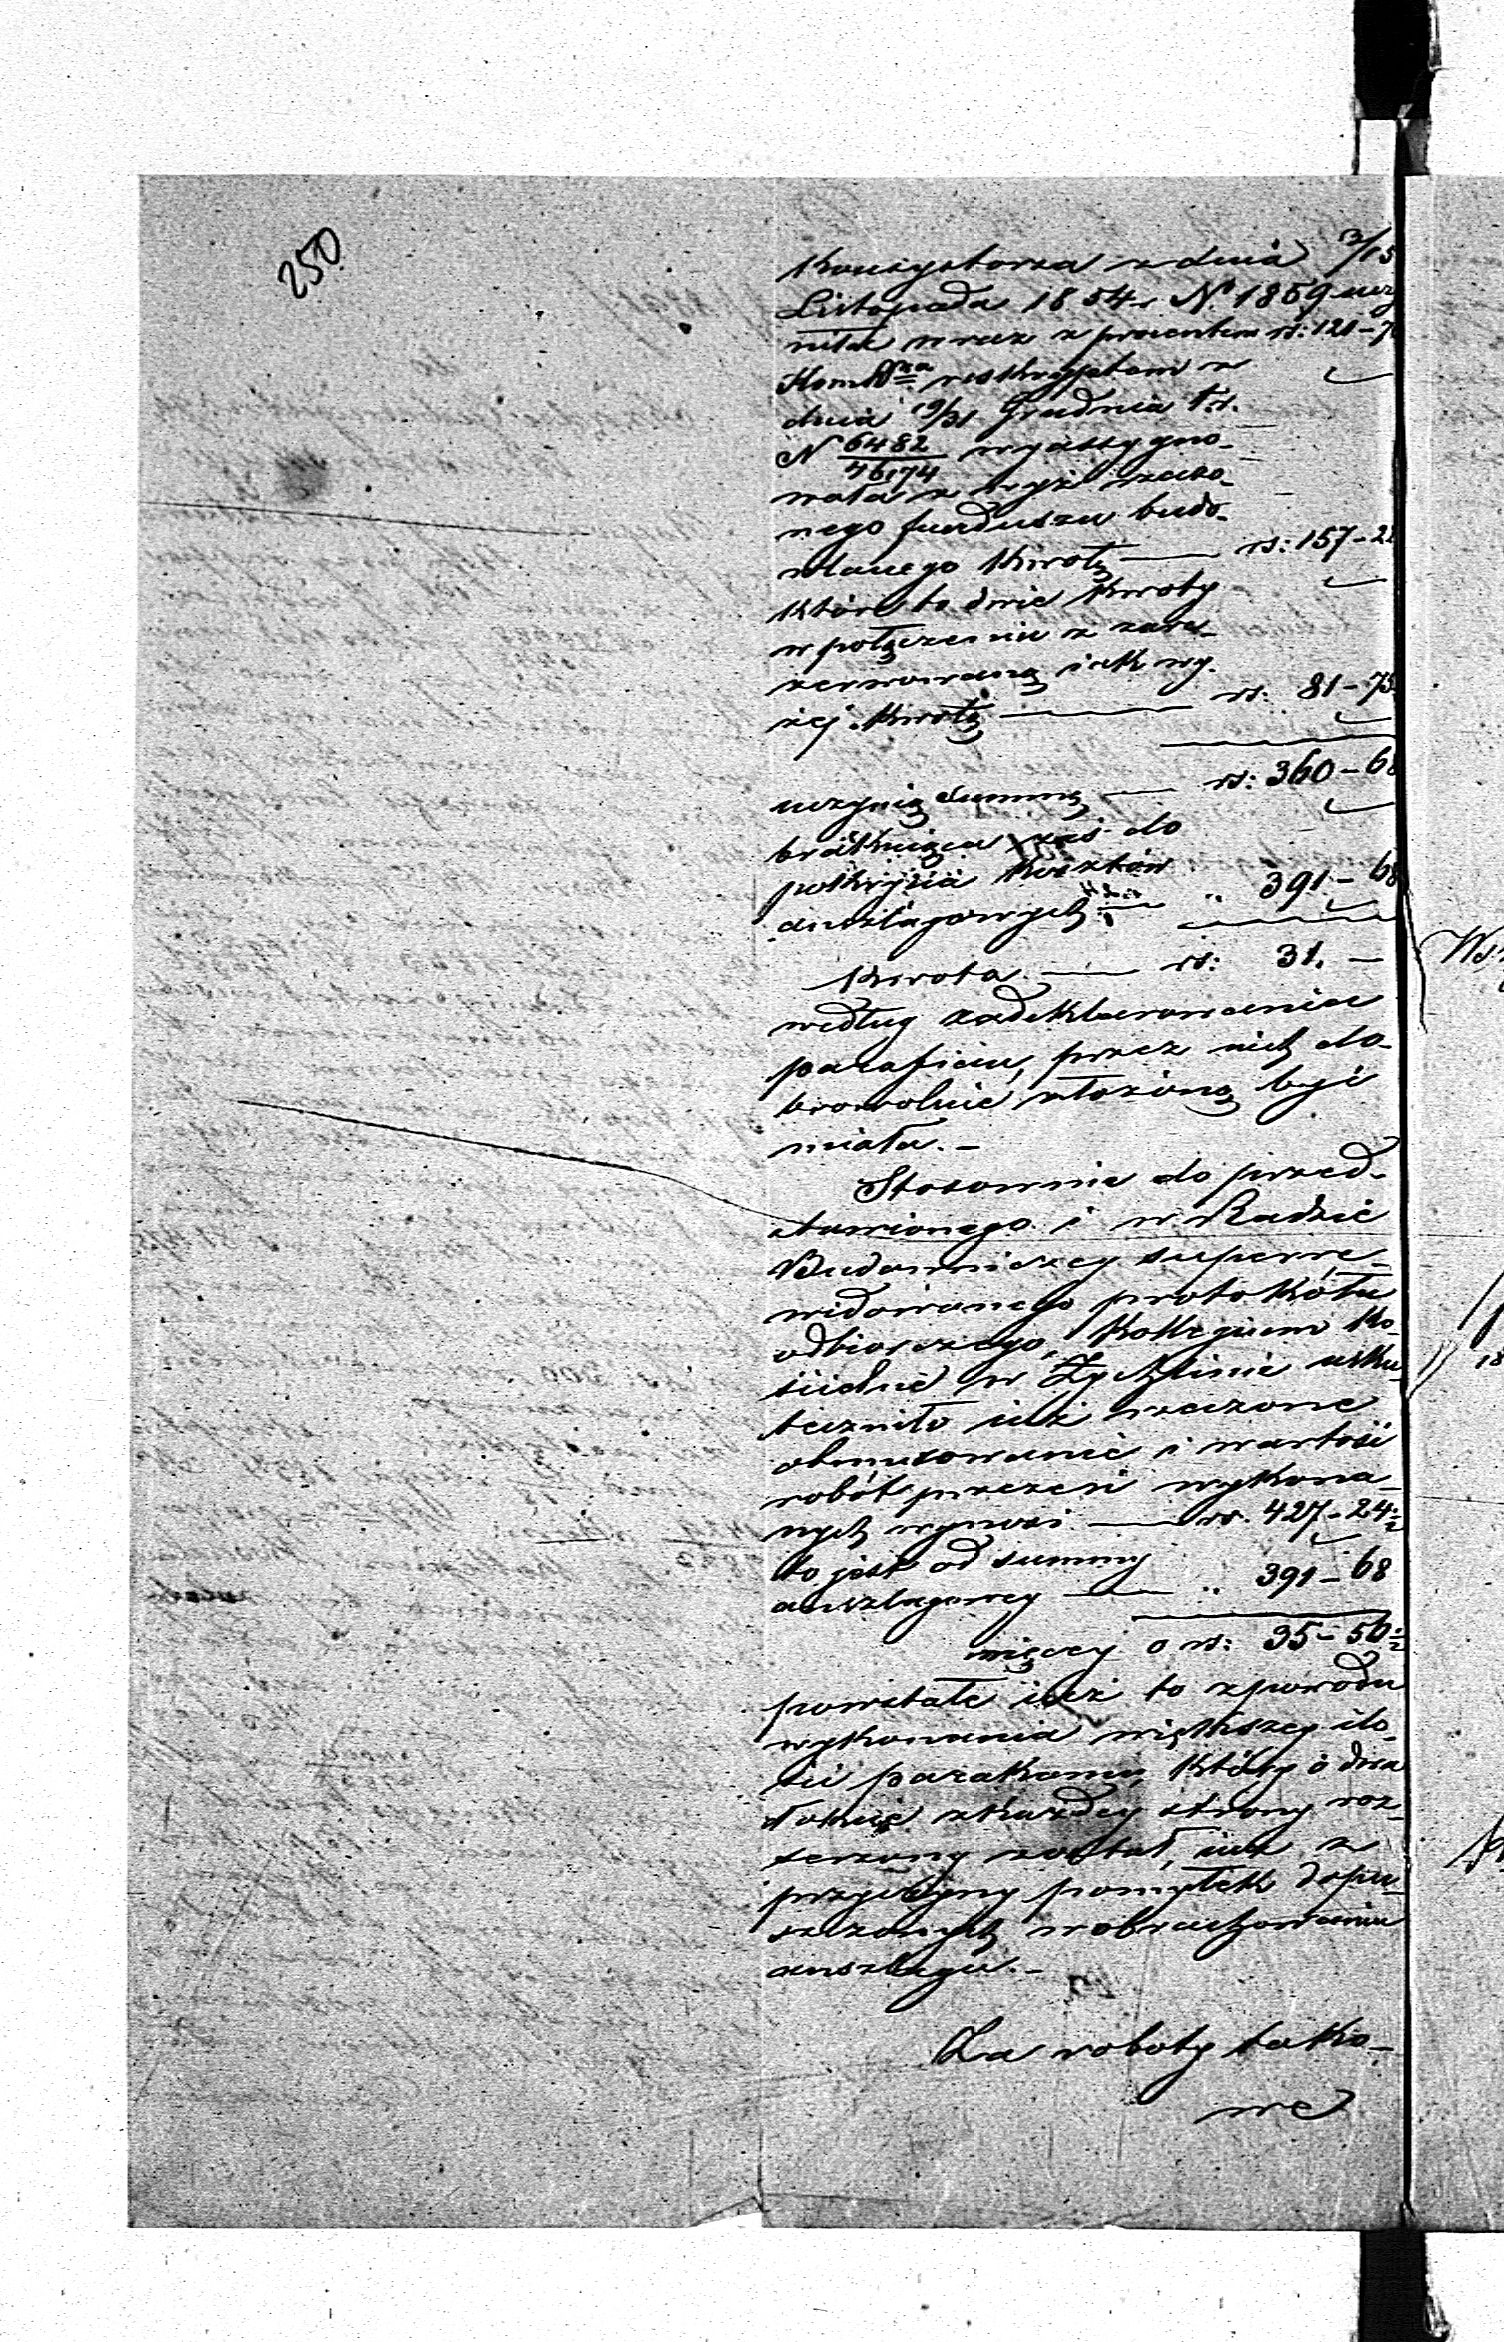 250
Konsystorza z dnia 3/15
Listopada 1854 r. N. 1859 uczy
niła wraz z procentem rs: 121-7
Kom. reskryptem z
dnia 19/31 Grudnia t.r.
N 6482/46174 wyassygno-
wała z wyżej rzeczo-
nego funduszu budo-
wlanego kwotę — rs: 157-22
które to dwie kwoty
w połączeniu z zare-
zerwowaną iak wy-
żej kwotą — rs: 81-73
uczynią summę — rs: 360-68
brakuiąca zaś do
pokrycia kosztów
anszlagowych — " 391-68
kwota — rs: 31. —
według zadeklarowania
parafian, przez nich do-
browolnie złożoną być
miała. -
Stosownie do przed-
stawionego i w Radzie
Budowniczey superre-
widowanego protokółu
odbiorczego, Kollegium Ko-
ścielne w Żychlinie usku
teczniło iuż rzeczone
obmurowanie i wartość
robót przezeń wykona-
nych wynosi — rs. 427-24
to jest od summy
anszlagowey — " 391-68
więcey o rs: 35-56
powstałe iuż to z powodu
wykonania większey ilo
ści parakanu, który o dwa
łokcie z każdey strony roz-
szerzony został, iuż z
przyczyny pomyłek dopu-
szczonych w obrachowaniu
anszlagu. -
Za roboty tako-
we